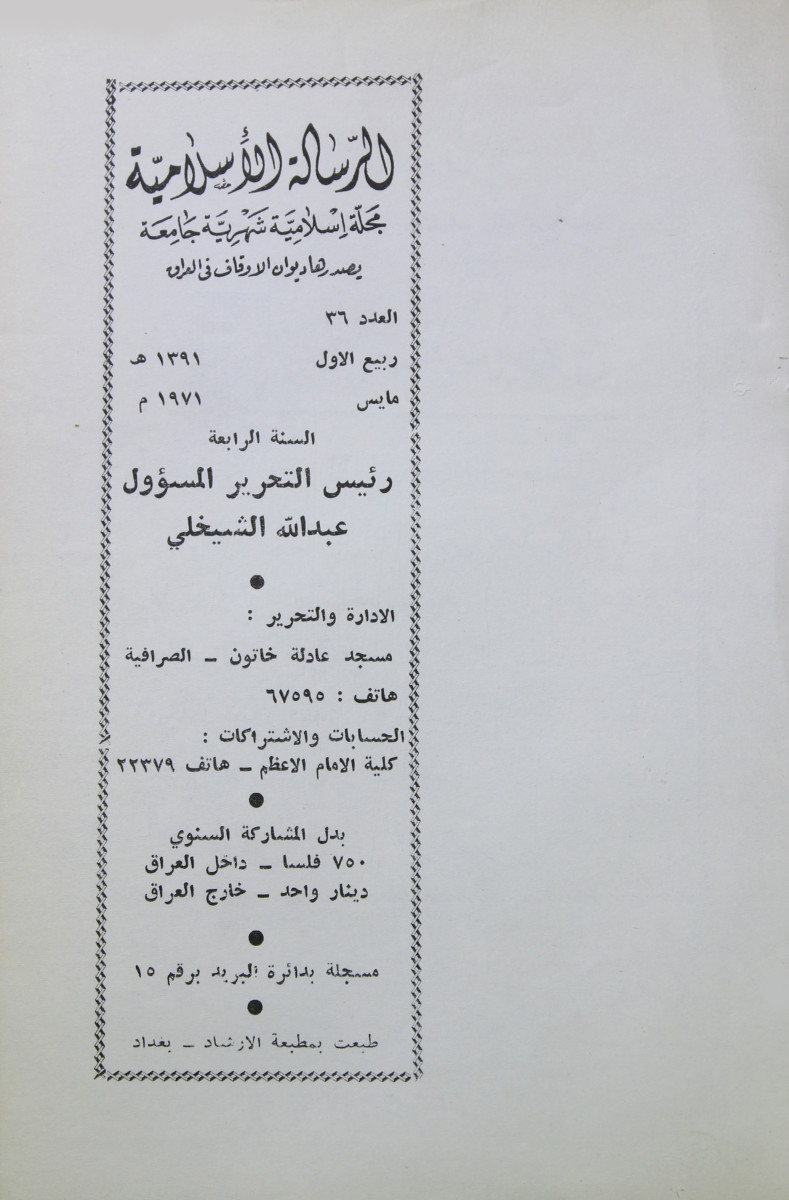 الرّسالة الأسلاميّة
مَجَلّة إسْلَاميَّة شَهْريَّة جَامِعَة
يصدرها ديوان الاوقاف في العراق
العدد ٣٦
ربيع الاول ١٣٩١ هـ
مايس ١٩٧١ م
السنة الرابعة
رئيس التحرير المسؤول
عبدالله الشيخلي
الادارة والتحرير :
مسجد عادلة خاتون ـ الصرافية
هاتف : ٦٧٥٩٥
الحسابات والاشتراكات :
كلية الامام الاعظم ـ هاتف ٢٢٣٧٩
بدل المشاركة السنوي
٧٥٠ فلسا ـ داخل العراق
دينار واحد ـ خارج العراق
مسجلة بدائرة البريد برقم ١٥
طبعت بمطبعة الارشاد ـ بغداد